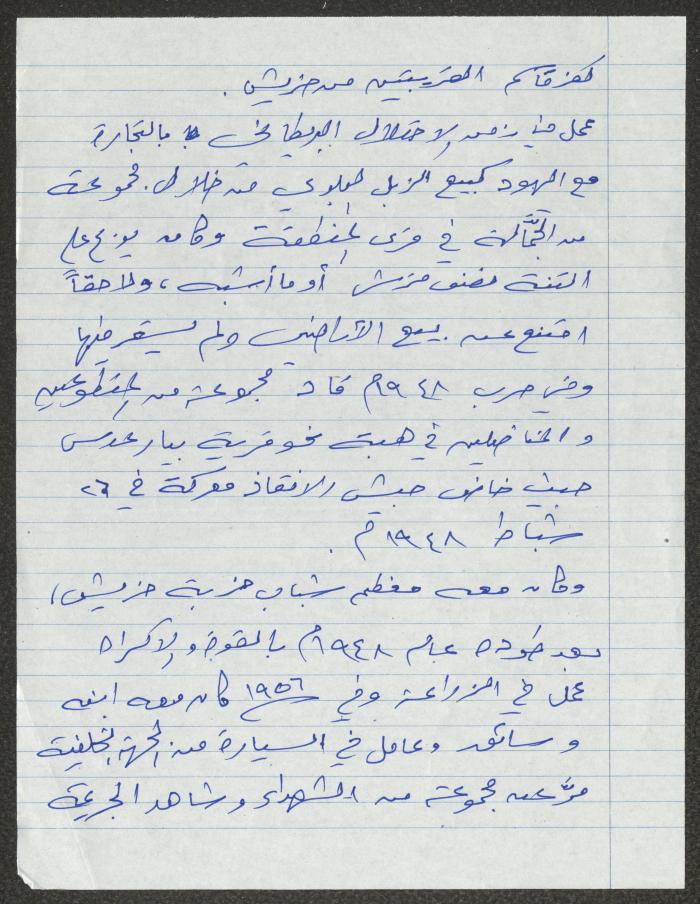 لكفر قاسم القريبتين من خريش.
عمل في زمن الاحتلال البريطاني بالتجارة
مع اليهود كبيع الزبل البلدي من خلال مجموعة
من الجمّالة في قرى المنطقة وكان
أو ما أشبه، ولاحقاً
امتنع عن بيع الأراضي ولم يستمر فيها
وفي حرب ١٩٤٨م قاد مجموعة من المتطوعين
والمناضلين في هبة نحو قرية بيار عدس
حيث خاض جيش الانقاذ معركة في ٢٦
شباط ١٩٤٨م.
وكان معه معظم شباب خربة خريش،
بعد طرده عام ١٩٤٨م بالقوة والاكراه
عمل في الزراعة وفي ١٩٥٦ كان معه ابنه
وسائق وعامل في السيارة من الجهة الخلفية
مرّ عن مجموعة من الشهداء وشاهد الجريمة